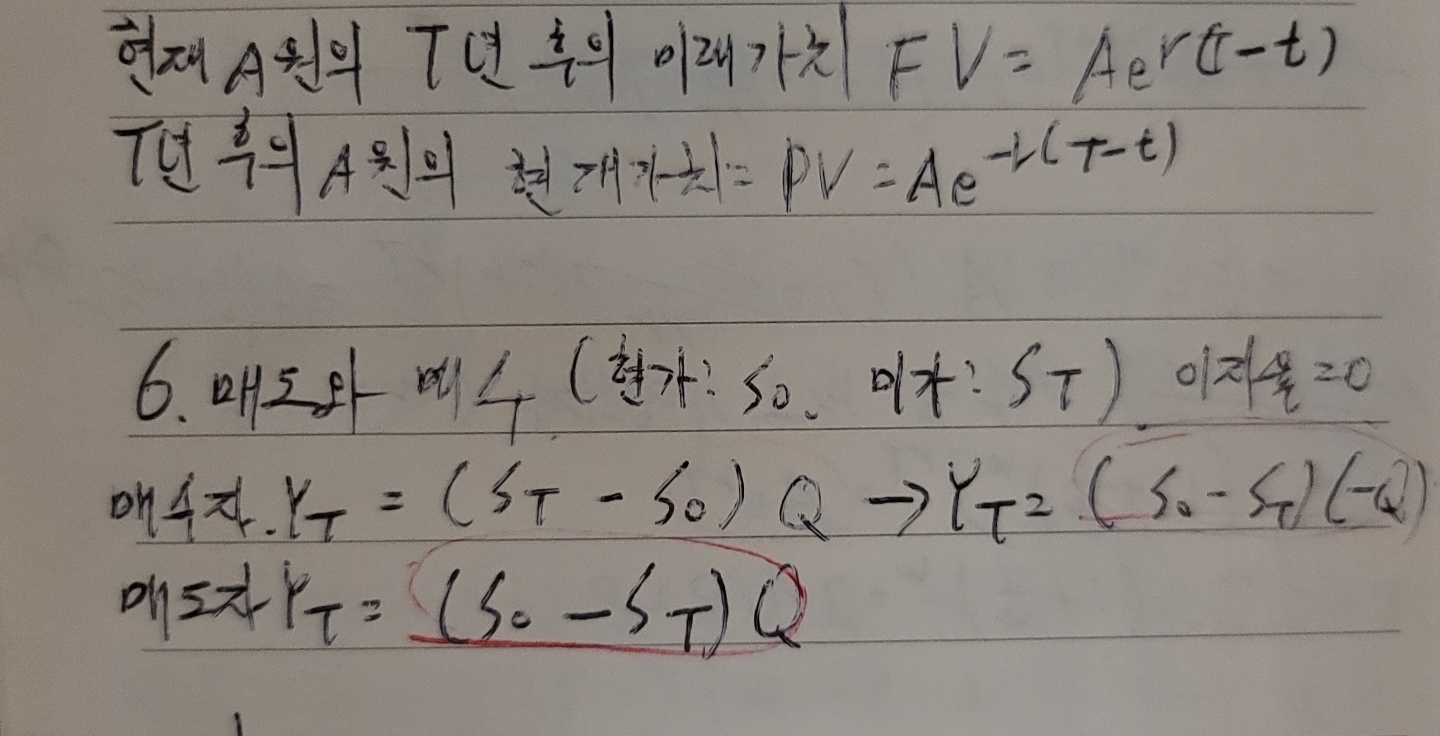 현재 A원의 T년 후의 미래가치 FV = Ae^r(T-t)
T년 후의 A원의 현재가치 = PV = Ae^-r(T-t)
6. 매도와 매수 (현가: S₀, 미가: S_T) 이자율=0
매수자. Y_T = (S_T - S₀) Q → Y_T = (S₀ - S_T)(-Q)
매도자 Y_T = (S₀ - S_T) Q